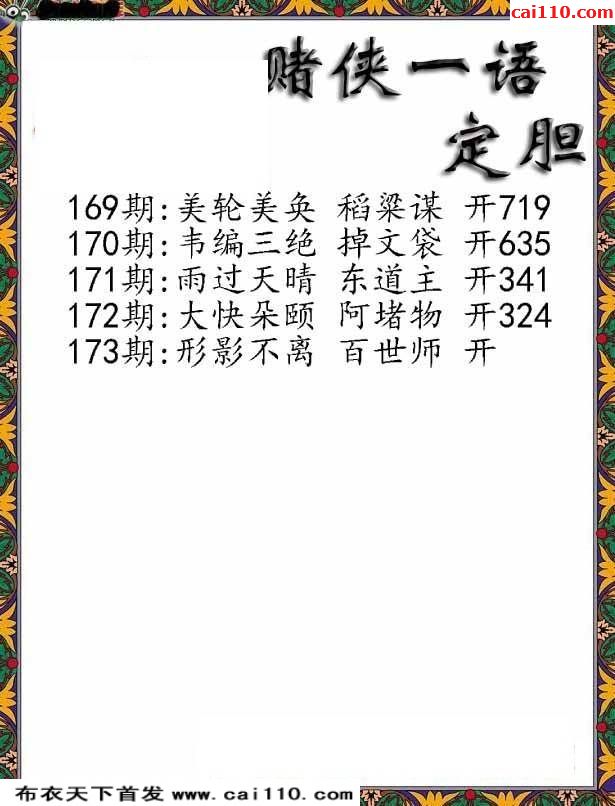 cai110.com
赌侠一语
定胆
169期:美轮美奂 稻粱谋 开719
170期:韦编三绝 掉文袋 开635
171期:雨过天晴 东道主 开341
172期:大快朵颐 阿堵物 开324
173期:形影不离 百世师 开
布衣天下首发 www.cai110.com